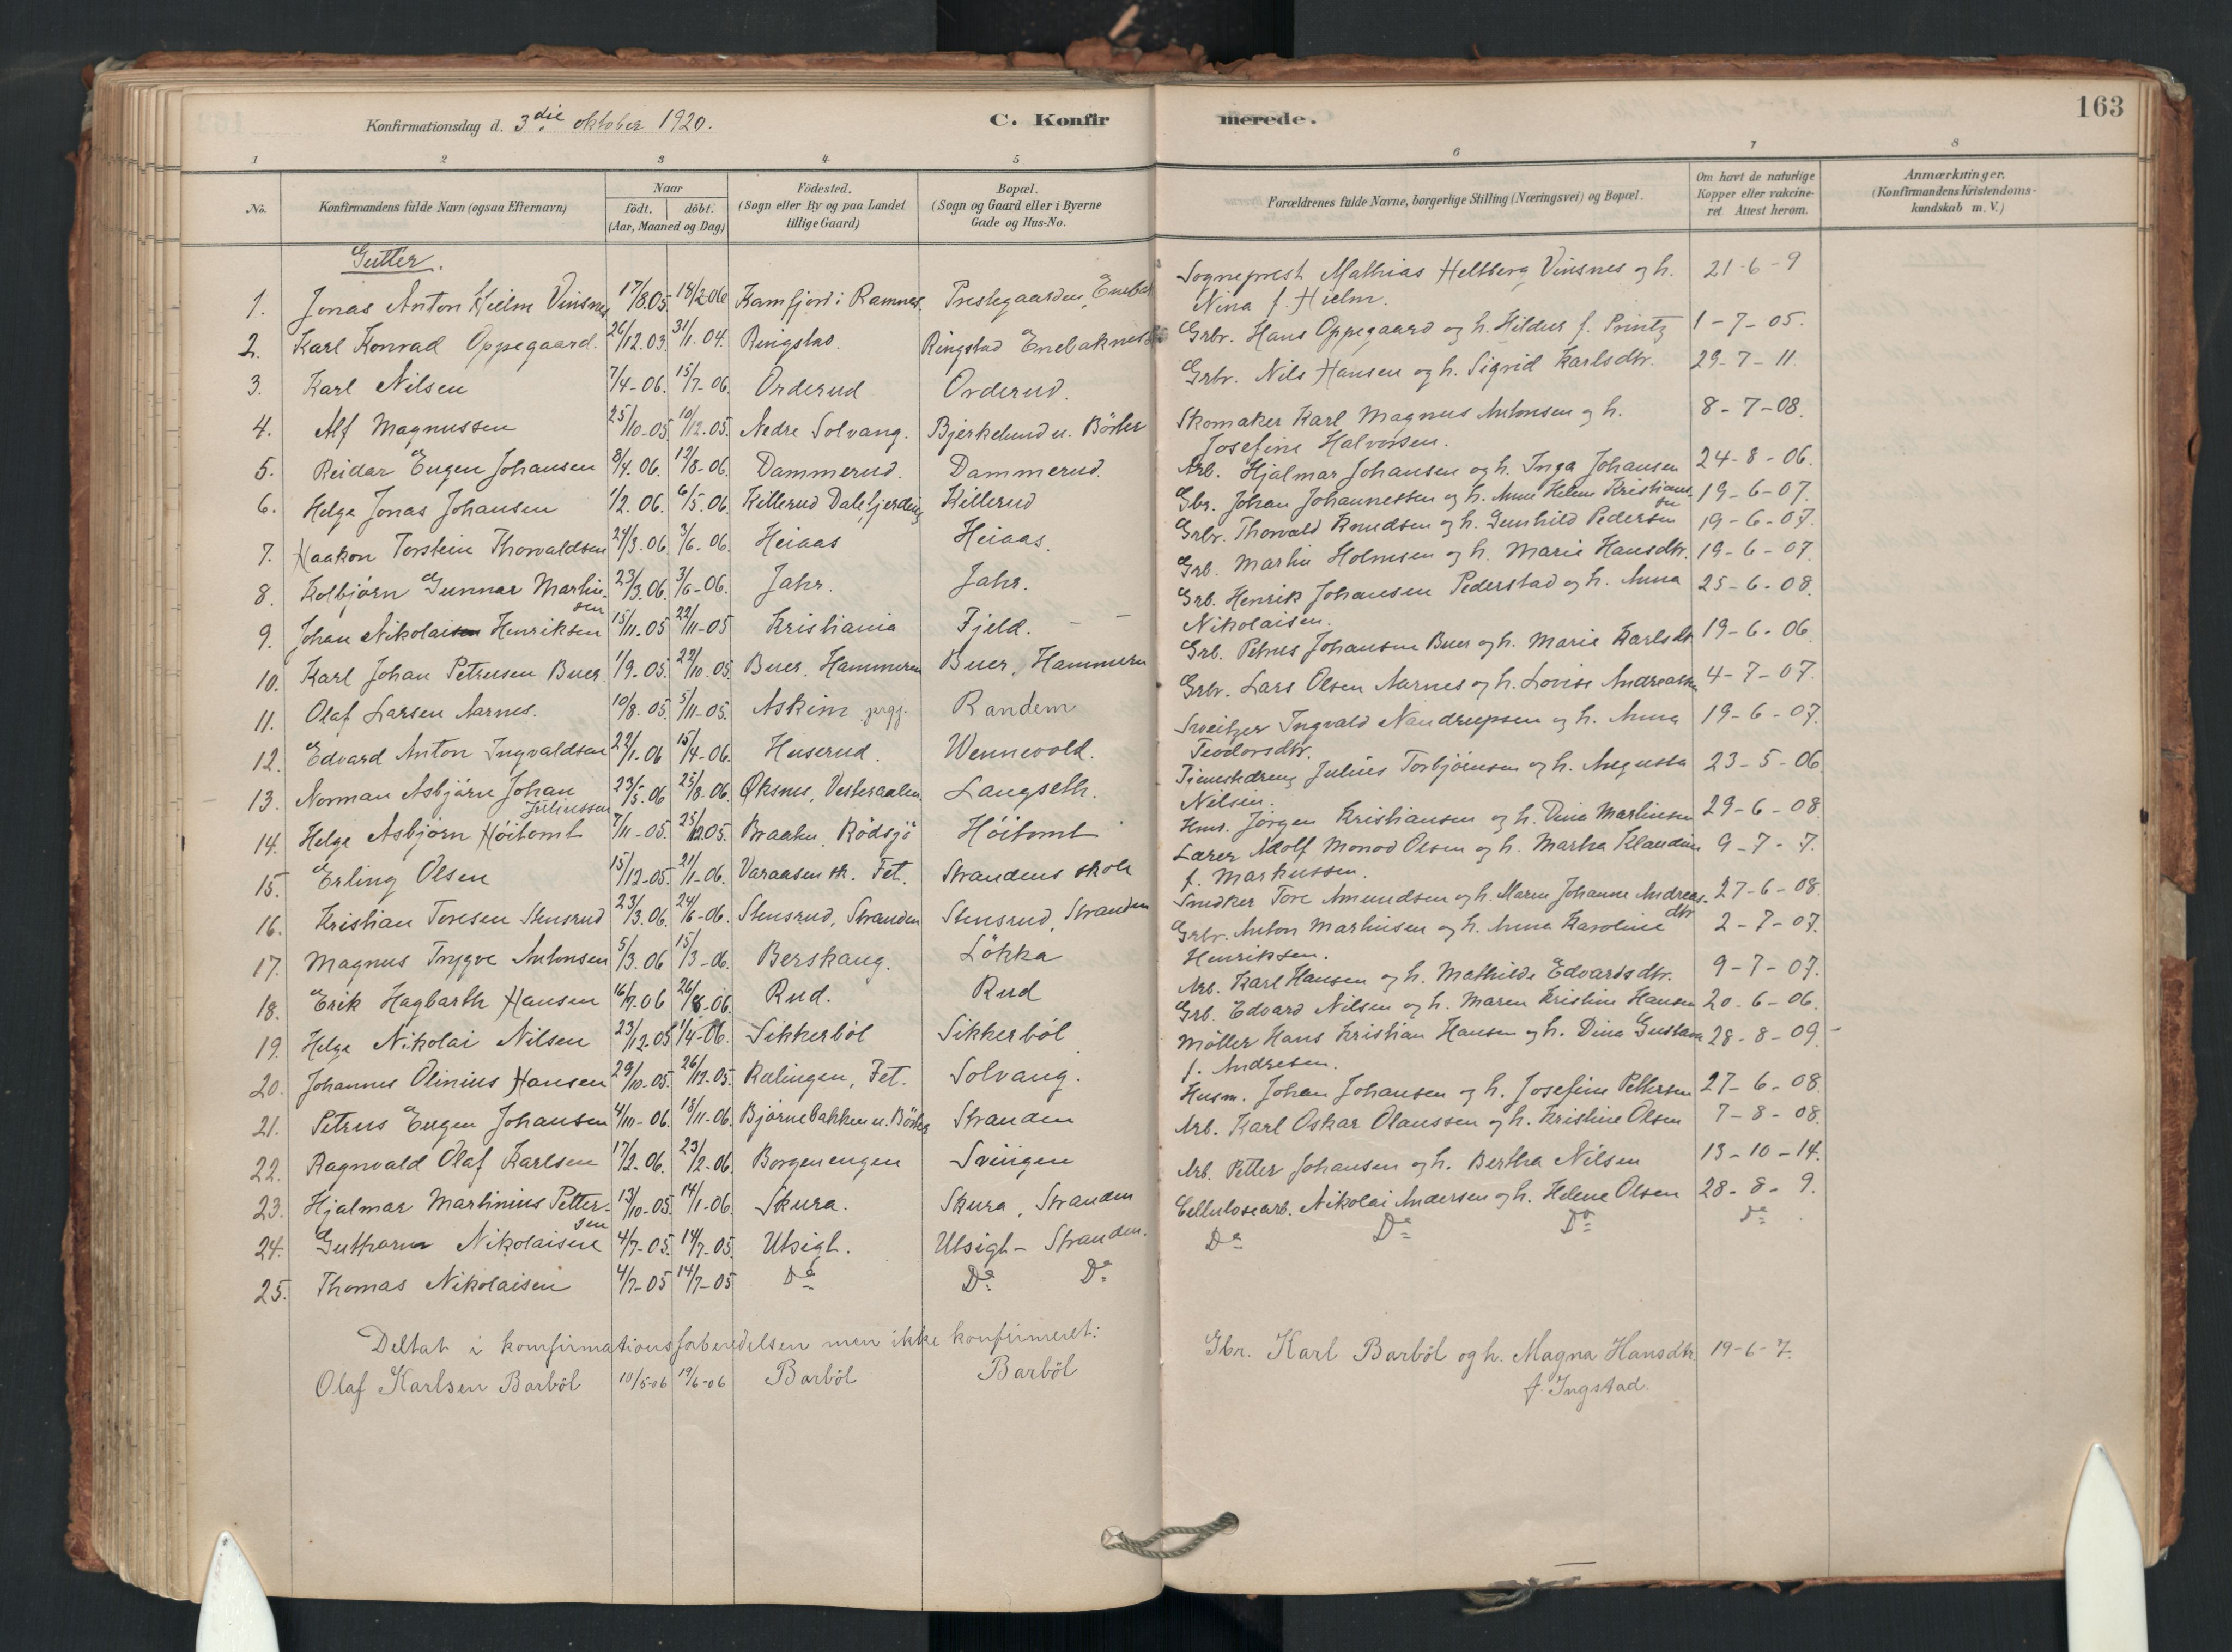 Konfirmationsdag d. 3die oktober 1920. C. Konfirmerede. 163
1 2 3 4 5 6 7 8
No. Konfirmandens fulde Navn (ogsaa Efternavn) Naar født. døbt. (Aar, Maaned og Dag) Fødested. (Sogn eller By og paa Landet tillige Gaard) Bopæl. (Sogn og Gaard eller i Byerne Gade og Hus-No. Forældrenes fulde Navne, borgerlige Stilling (Næringsvei) og Bopæl. Om havt de naturlige Kopper eller vakcineret Attest herom. Anmærkninger. (Konfirmandens Kristendomskundskab m. V.)
Gutter.
1. Jonas Anton Hjelm Vinsnes 17/8.05 18/2 06 Kamfjord i Ramnes Prestegaarden, Eneb Sogneprest Mathias Heltberg Vinsnes og h. Nina f. Hjelm. 21-6-9
2. Karl Konrad Oppegaard. 26/12.03 31/1.04. Ringstad. Ringstad Enebaknes Grbr. Hans Oppegaard og h. Hildur f. Printz 1-7-05.
3. Karl Nilsen 7/4-06. 15/7-06. Orderud Orderud. Grbr. Nils Hansen og h. Sigrid Karlsdtr. 29-7-11.
4. Alf Magnussen 25/10-05 10/12.05. Nedre Solvang. Bjerkelund u. Börter Skomaker Karl Magnus Antonsen og h. Josefine Halvorsen. 8-7-08.
5. Reidar Eugen Johansen 8/4.06. 12/8-06. Dammerud. Dammerud. Arb. Hjalmar Johansen og h. Inga Johansen 24-8-06.
6. Helge Jonas Johansen 1/2.06. 6/5.06. Killerud Dalefjerding Killerud Gbr. Johan Johannessen og h. Anne Helene Kristiansen 19-6-07.
7. Haakon Torstein Thorvaldsen 24/3.06. 3/6.06. Heiaas Heiaas. Grbr. Thorvald Knudsen og h. Gunhild Pedersen 19-6-07.
8. Kolbjørn Gunnar Martinsen 23/3.06. 3/6-06. Jahr. Jahr. Grb. Martin Holmsen og h. Marie Hansdtr. 19-6-07.
9. Johan Nikolaisen Henriksen 15/11.05 22/11-05 Kristiania Fjeld. - - Grb. Henrik Johansen Pederstad og h. Anna Nikolaisen. 25-6-08.
10. Karl Johan Petrusen Buer. 1/9-05. 22/10.05. Buer, Hammeren Buer, Hammern Grb. Petrus Johansen Buer og h. Marie Karlsdtr 19-6-06.
11. Olaf Larsen Aarnes. 10/8.05. 5/11-05. Askim prgj. Randem Grbr. Lars Olsen Aarnes og h. Lovise Andreassen 4-7-07.
12. Edvard Anton Ingvaldsen 22/1-06 15/4-06. Huserud. Wennevold. Sveitzer Ingvald Nandrupsen og h. Anna Teodorsdtr. 19-6-07.
13. Norman Asbjørn Johan Juliussen 23/5.06 25/8-06. Øksnes, Vesteraalen Langseth. Tjenestedreng Julius Torbjörnsen og h. Augusta Nilsen. 23-5-06.
14. Helge Asbjørn Höitomt 7/11-05. 25/12.05. Braaten, Rödsjö Höitomt Hms. Jörgen Kristiansen og h. Dina Martinsen 29-6-08.
15. Erling Olsen 15/12-05. 21/1-06. Varaasen sk. Fet. Strandens skole Lærer Adolf Monod Olsen og h. Marha Klaudine f. Markussen. 9-7-7.
16. Kristian Toresen Stensrud 23/3.06. 24/6-06. Stensrud, Stranden Stensrud, Stranden Snedker Tore Amundsen og h. Maren Johanne Andreasdtr 27-6-08.
17. Magnus Trygve Antonsen 5/3.06 15/3-06. Berskaug. Løkka Grbr. Anton Martinsen og h. Anna Karoline Henriksen. 2-7-07.
18. Erik Hagbarth Hansen 16/7.06 26/8-06. Rud. Rud Arb. Karl Hansen og h. Mathilde Edvardsdtr. 9-7-07.
19. Helge Nikolai Nilsen 23/12-05 1/4-06. Sikkerböl Sikkerböl Grb. Edvard Nilsen og h. Maren Kristine Hansen 20-6-06.
20. Johannes Olinius Hansen 29/10-05. 26/12-05. Rælingen, Fet. Solvang. Möller Hans Kristian Hansen og h. Dina Gustava f. Andresen. 28-8-09.
21. Petrus Eugen Johansen 4/10-06. 18/11-06. Bjørnebakken u. Börter Stranden Husm. Johan Johansen og h. Josefine Pettersen 27-6-08.
22. Ragnvald Olaf Karlsen 17/2-06. 23/2-06. Borgenengen Svingen Arb. Karl Oskar Olaussen og h. Kristine Olsen 7-8-08.
23. Hjalmar Martinius Pettersen 13/10-05. 14/1-06. Skura. Skura, Stranden Arb. Petter Johansen og h. Bertha Nilsen 13-10-14.
24. Guttorm Nikolaisen 4/7-05. 14/7-05. Utsigt. Utsigt - Stranden. Cellulosearb. Nikolai Andersen og h. Helene Olsen 28-8-9.
25. Thomas Nikolaisen 4/7-05 14/7-05 Do Do Do Do Do Do Do
Deltat i konfirmationsforberedelsen men ikke konfirmeret:
Olaf Karlsen Barböl 10/5-06 19/6-06 Barböl Barböl Gbr. Karl Barböl og h. Magna Hansdtr f. Ingstad. 19-6-7.